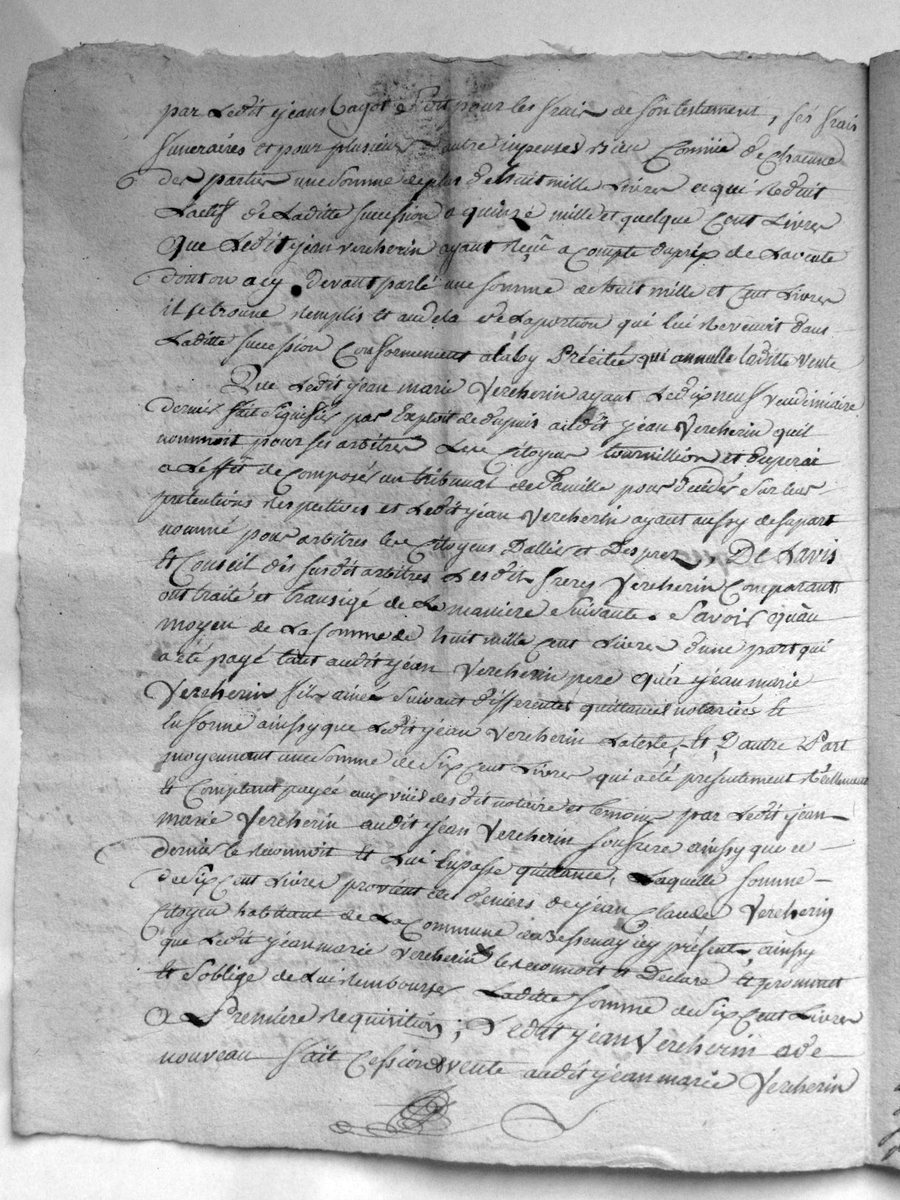 par Ledit jean Cagot soit pour les frais de son testament, ses frais
funeraires et pour plusieurs autre impenses Bien Connüe de Chacune
des parties une somme de plus de huit mille Livres ce qui Reduit
Lactif de Laditte succession a quinze mille et quelque Cent Livres
Que Ledit jean vercherin ayant Reçu a compte du prix de La vente
dont on a cy Devant parlé une somme de huit mille et Cent Livres
il se trouve Remplis et au dela de La portion qui lui Revenoit dans
Laditte succession Conformement a la loy Précitée qui annulle ladite vente
Que Ledit jean marie Vercherin ayant Le dix neuf vendemiaire
dernier fait signifier par Exploit de Dupuis audit jean Vercherin quil
nommoit pour ses arbitres Les Citoyens tournillion et Duperai
a Leffet de Composer un tribunal de famille pour Decider Sur leur
pretentions Respectives et Ledit jean Vercherin ayant aussy de sa part
nommé pour arbitres les Citoyens Dallier et Desprez, De Lavis
Et Conseil des susdit arbitres Lesdit freres Vercherin Comparants
ont traité et transigé de La maniere suivante. Savoir Qu'au
moyen de La somme de huit mille Cent Livres d'une part qui
a été payé tant audit jean Vercherin pere qu'a jean marie
Vercherin fils ainé suivant differentes quittances notariées Et
En forme ainssy que Ledit jean Vercherin Lateste, Et D'autre Part
moyennant une somme de Six Cent Livres qui a été présentement Réellement
Et Comptant payée aux vües des dit notaire et temoins par Ledit jean
marie Vercherin audit jean Vercherin son frere ainssy que ce
dernier le Reconnoit Et Lui En passe quittance, Laquelle somme
de Six Cent Livres provient des Deniers de jean Claude Vercherin
Citoyen habitant de La Commune de Bessenay icy présent ainssy
que Ledit jean marie Vercherin le Reconnoit et Declare Et promet
Et S'oblige de Lui Rembourser Laditte somme de Six Cent Livres
a Premiere Requisition; Ledit jean Vercherin a de
nouveau fait Cession & vente audit jean marie Vercherin